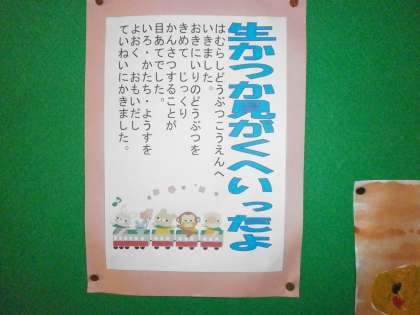 生かつか見がくへいったよ
はむらしどうぶつこうえんへ
いきました。
おきにいりのどうぶつを
きめて じっくり
かんさつすることが
目あてでした。
いろ・かたち・ようすを
よおく おもいだし
ていねいにかきました。